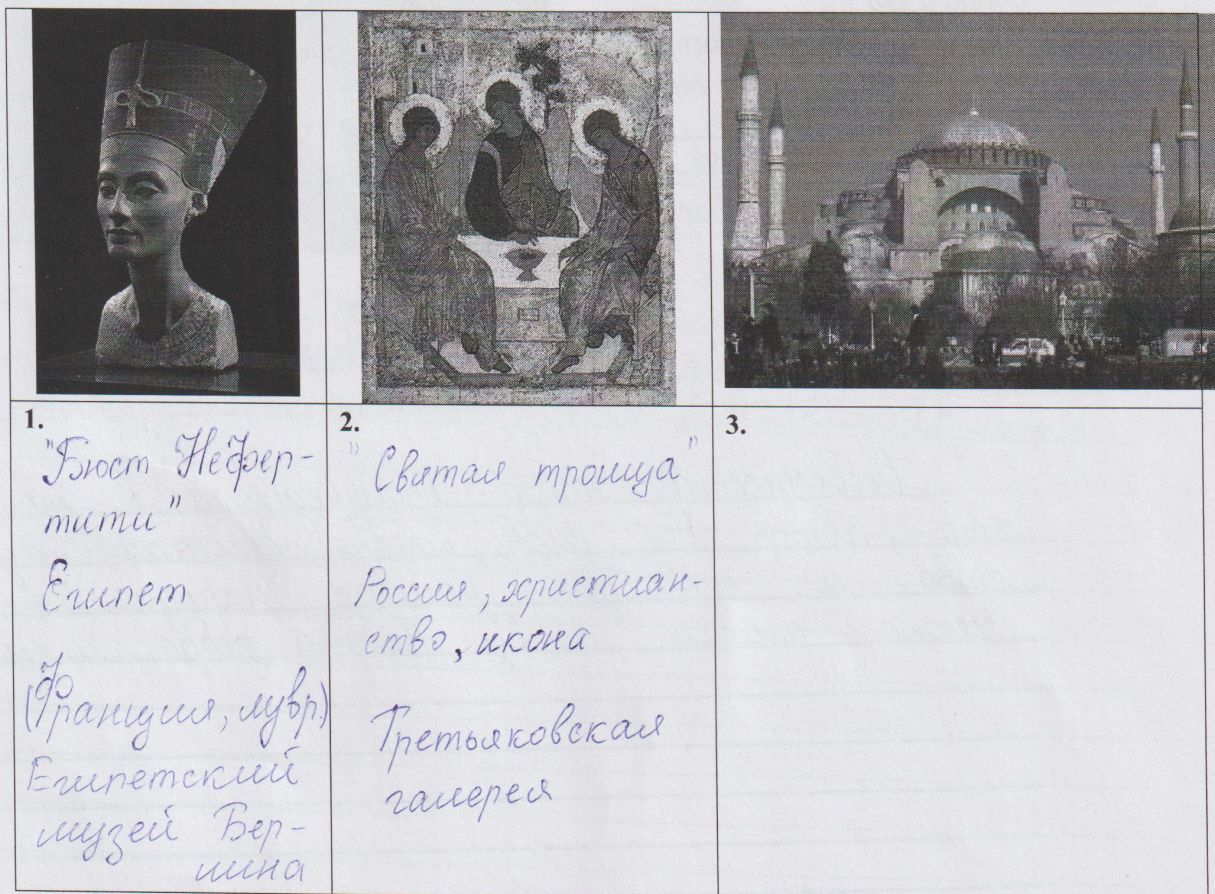 1.
"Бюст Нефер-
тити"
Египет
(Франция, лувр.)
Египетский
музей Бер-
лина
2.
"Святая троица"
Россия, христиан-
ство, икона
Третьяковская
галерея
3.